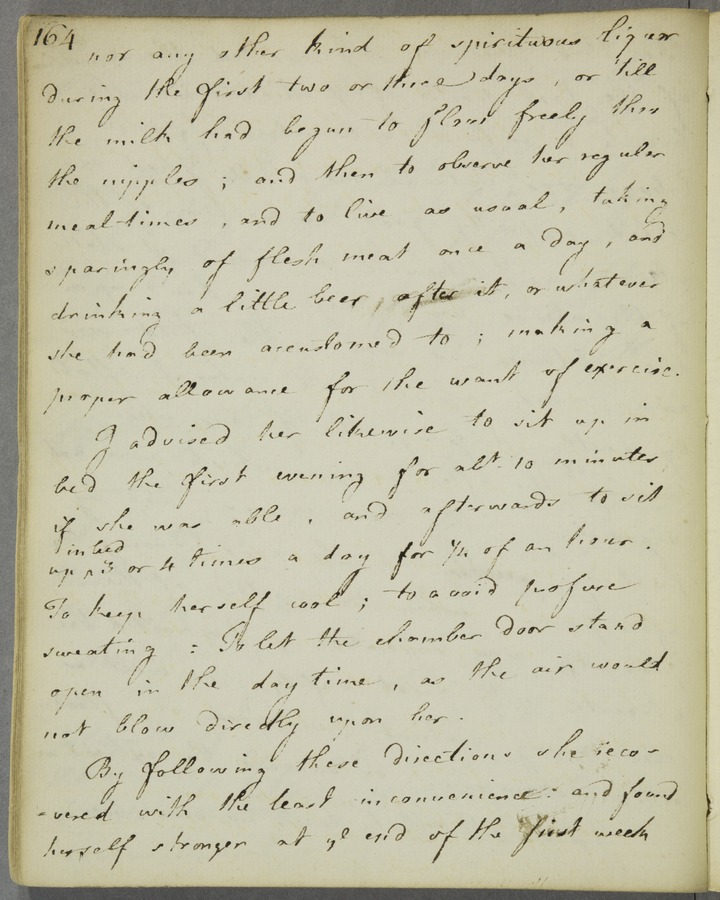 164
nor any other kind of spirituous liquor
during the first two or three days, or 'till
the milk had begun to flow freely thro
the nipples; and then to observe her regular
meal-times, and to live as usual, taking
sparingly of flesh meat once a day, and
drinking a little beer, after it, or whatever
she had been accustomed to; making a
proper allowance for the want of exercise.
I advised her likewise to sit up in
bed the first evening for abt. 10 minutes
if she was able, and afterwards to sit
in bed
up ^ 3 or 4 times a day for 1/4 of an hour.
To keep herself cool; to avoid profuse
sweating: To let the chamber door stand
open in the day time, as the air would
not blow directly upon her.
By following these directions she reco-
-vered with the least inconvenience: and found
herself stronger at ye end of the first week